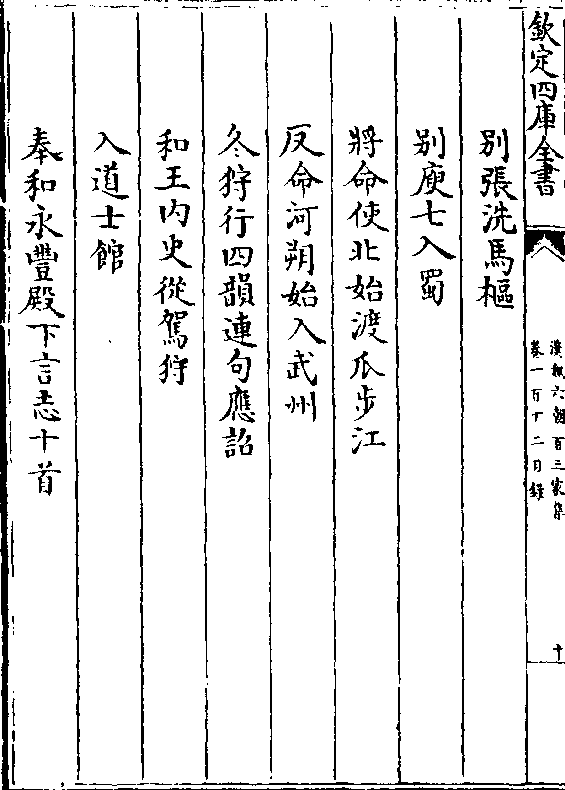 欽定四庫全書
漢魏六朝百三家集
卷一百十二目録
十
別張洗馬樞
別庾七入蜀
將命使北始渡瓜步江
反命河朔始入武州
冬狩行四韻連句應詔
和王内史從駕狩
入道士館
奉和永豐殿下言志十首